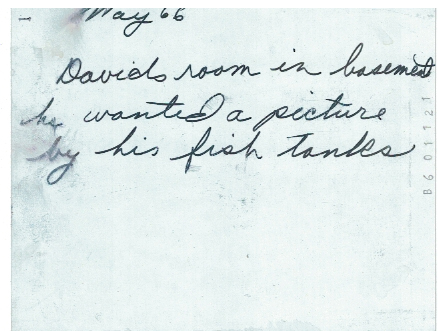 May 66
Davids room in basement
he wanted a picture
by his fish tanks
B601121